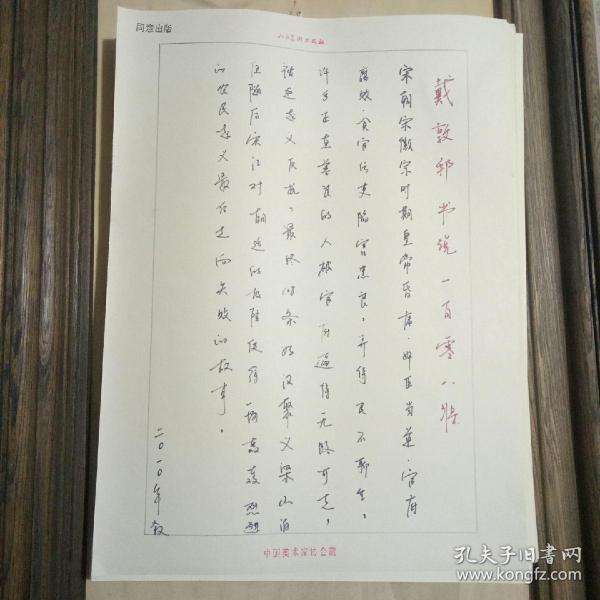 同意出版
戴敦邦书说一百零八将
宋朝宋徽宗时期皇帝昏庸.奸臣当道.官府
腐败.贪官污吏陷害忠良，弄得民不聊生，
许多正直善良的人被官府逼得无路可走，
造反起义反抗，最终108条好汉聚义梁山泊
但随后宋江对朝廷的投降使得一场轰轰烈烈
的农民起义最后走向失败的故事。
二〇一〇年
中国美术家协会藏
孔夫子旧书网
www.kongfz.com